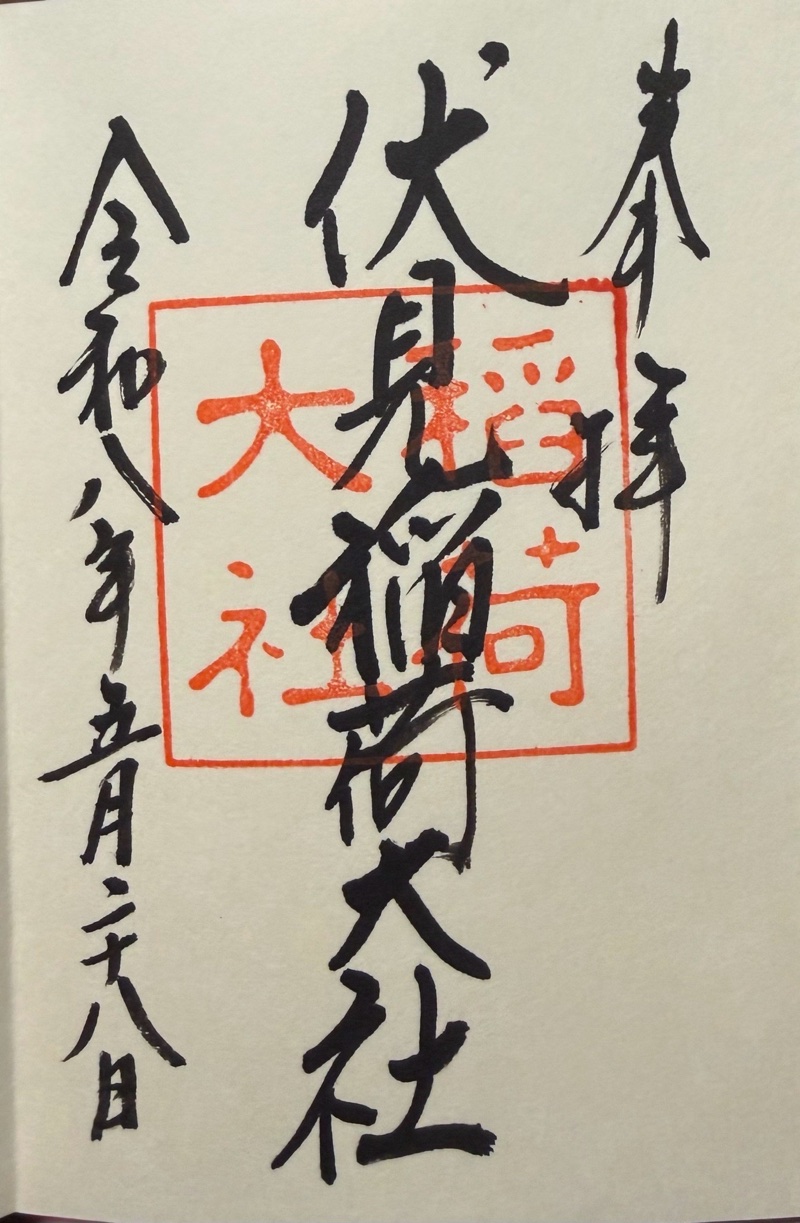 奉拝
伏見稲荷大社
令和八年五月二十八日
稲荷
大社